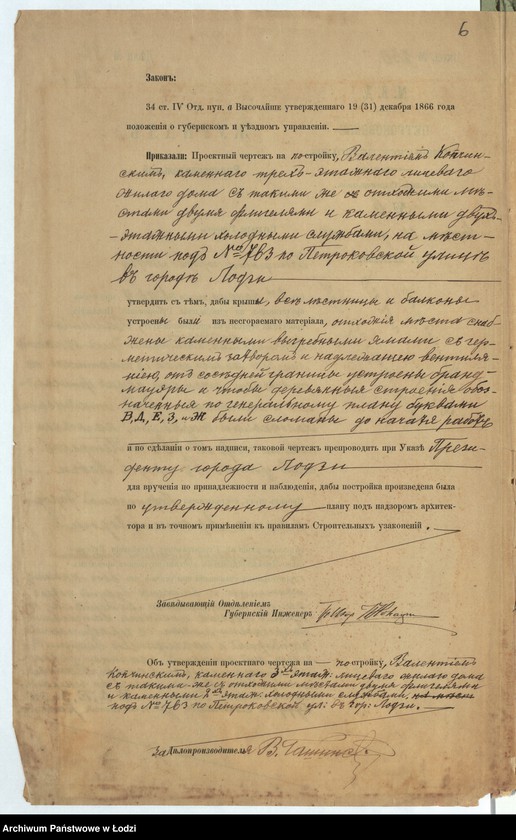 6
Законъ:
34 ст. IV Отд. пун. а Высочайше утвержденнаго 19 (31) декабря 1866 года
положенія о губернскомъ и уѣздномъ управленіи.
Приказали: Проектный чертежъ на постройку, Валентіемъ Копчин-
скимъ, каменнаго трехъ-этажнаго лицеваго
жилаго дома съ такими же съ отхожими мѣ-
стами двумя флигелями и каменными двухъ-
этажными холодными службами, на мѣст-
ности подъ № 763 по Петроковской улицѣ
въ городѣ Лодзи
утвердить съ тѣмъ, дабы крыши, всѣ лѣстницы и балконы
устроены были изъ несгораемаго матеріала, отхожія мѣста снаб-
жены каменными выгребными ямами съ гер-
метическимъ затворомъ и надлежащею вентиля-
ціею, отъ сосѣдней границы устроены бранд-
мауэры и чтобы деревянныя строенія обоз-
наченныя по генеральному плану буквами
В, Д, Е, З, и Ж были сломаны до начатія работъ
и по сдѣланіи о томъ надписи, таковой чертежъ препроводить при Указѣ Прези-
денту города Лодзи
для врученія по принадлежности и наблюденія, дабы постройка произведена была
по утвержденному плану подъ надзоромъ архитек-
тора и въ точномъ примѣненіи къ правиламъ Строительныхъ узаконеній.
Завѣдывающій Отдѣленіемъ
Губернскій Инженеръ
Объ утвержденіи проектнаго чертежа на постройку, Валентіемъ
Копчинскимъ, каменнаго 3хъ этаж: лицеваго жилаго дома
съ такими же съ отхожими мѣстами двумя флигелями
и каменными 2хъ этаж: холодными службами, на мѣст
подъ № 763 по Петроковской ул: въ гор: Лодзи.
За Дѣлопроизводителя
Archiwum Państwowe w Łodzi